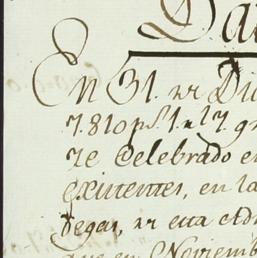 Da
En 31. de Di
7.810 p.s 1. r
re Celebrado e
existentes, en la
degas, de esta Ad
que en Noviemb